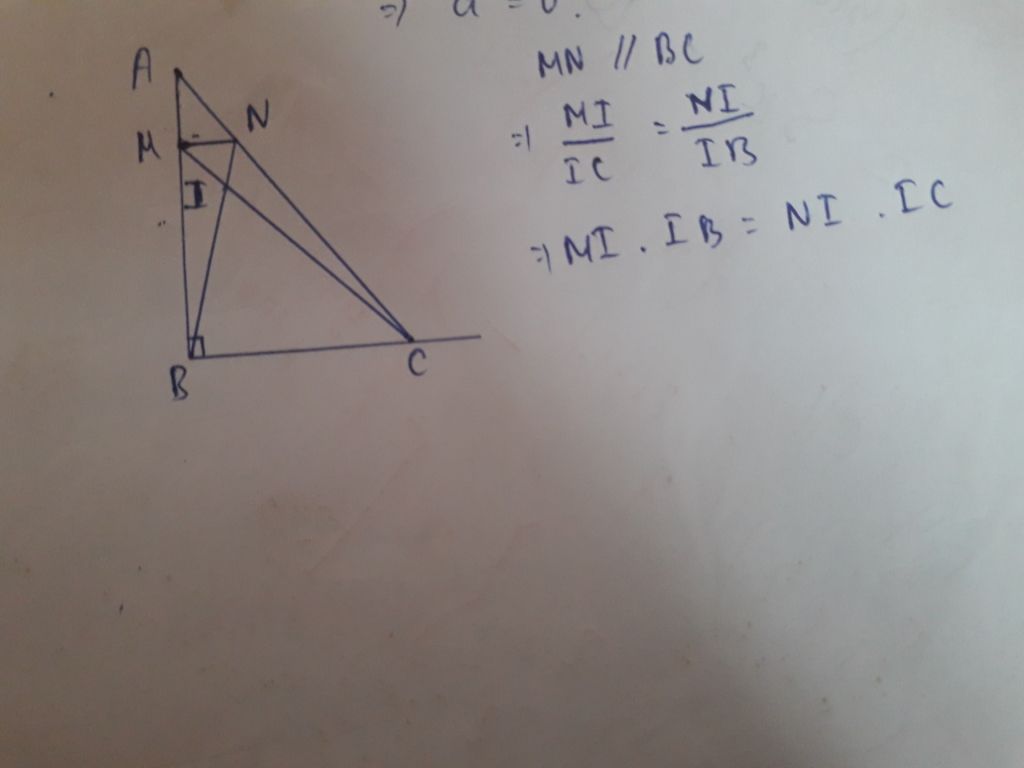 =) a = 0.
A
N
M
I
B
C
MN // BC
=) MI/IC = NI/IB
=) MI . IB = NI . IC